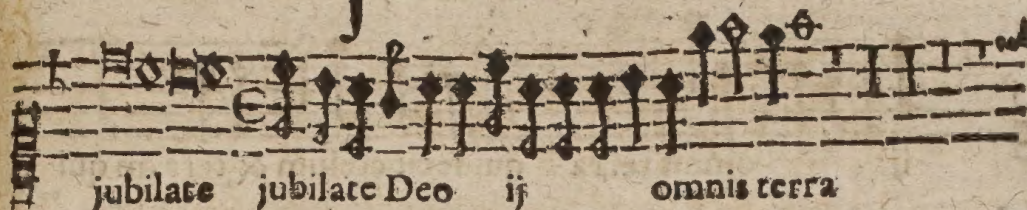 jubilate jubilate Deo ij omnis terra